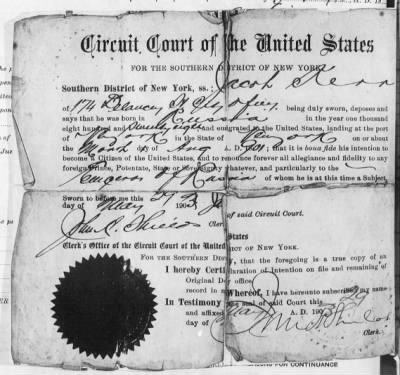 Circuit Court of the United States
FOR THE SOUTHERN DISTRICT OF NEW YORK.
Southern District of New York, ss: Jacob Kerr
of 174 Delancey St City of being duly sworn, deposes and
says that he was born in Russia in the year one thousand
eight hundred and and emigrated to the United States, landing at the port
of New York in the State of New York on or about
the Month day of Aug A.D. that it is bona fide his intention to
become a Citizen of the United States, and to renounce forever all allegiance and fidelity to any
foreign Prince, Potentate, State or Sovereignty whatever, particularly to the
Emperor of Russia of whom he is at this time a Subject.
Sworn to before me this
day of May 190 of said Circuit Court.
John A. Shields Clerk
Clerk's Office of the Circuit Court of the United States
FOR THE SOUTHERN DISTRICT OF NEW YORK.
I hereby Certify, that the foregoing is a true copy of an
Original Declaration of Intention on file and remaining of
record in my office.
In Testimony Whereof, I have hereunto subscribed my name
and affixed the seal of said Court this 29
day of May A.D. 190
John A. Shields
Clerk.
FOR CONTINUANCE